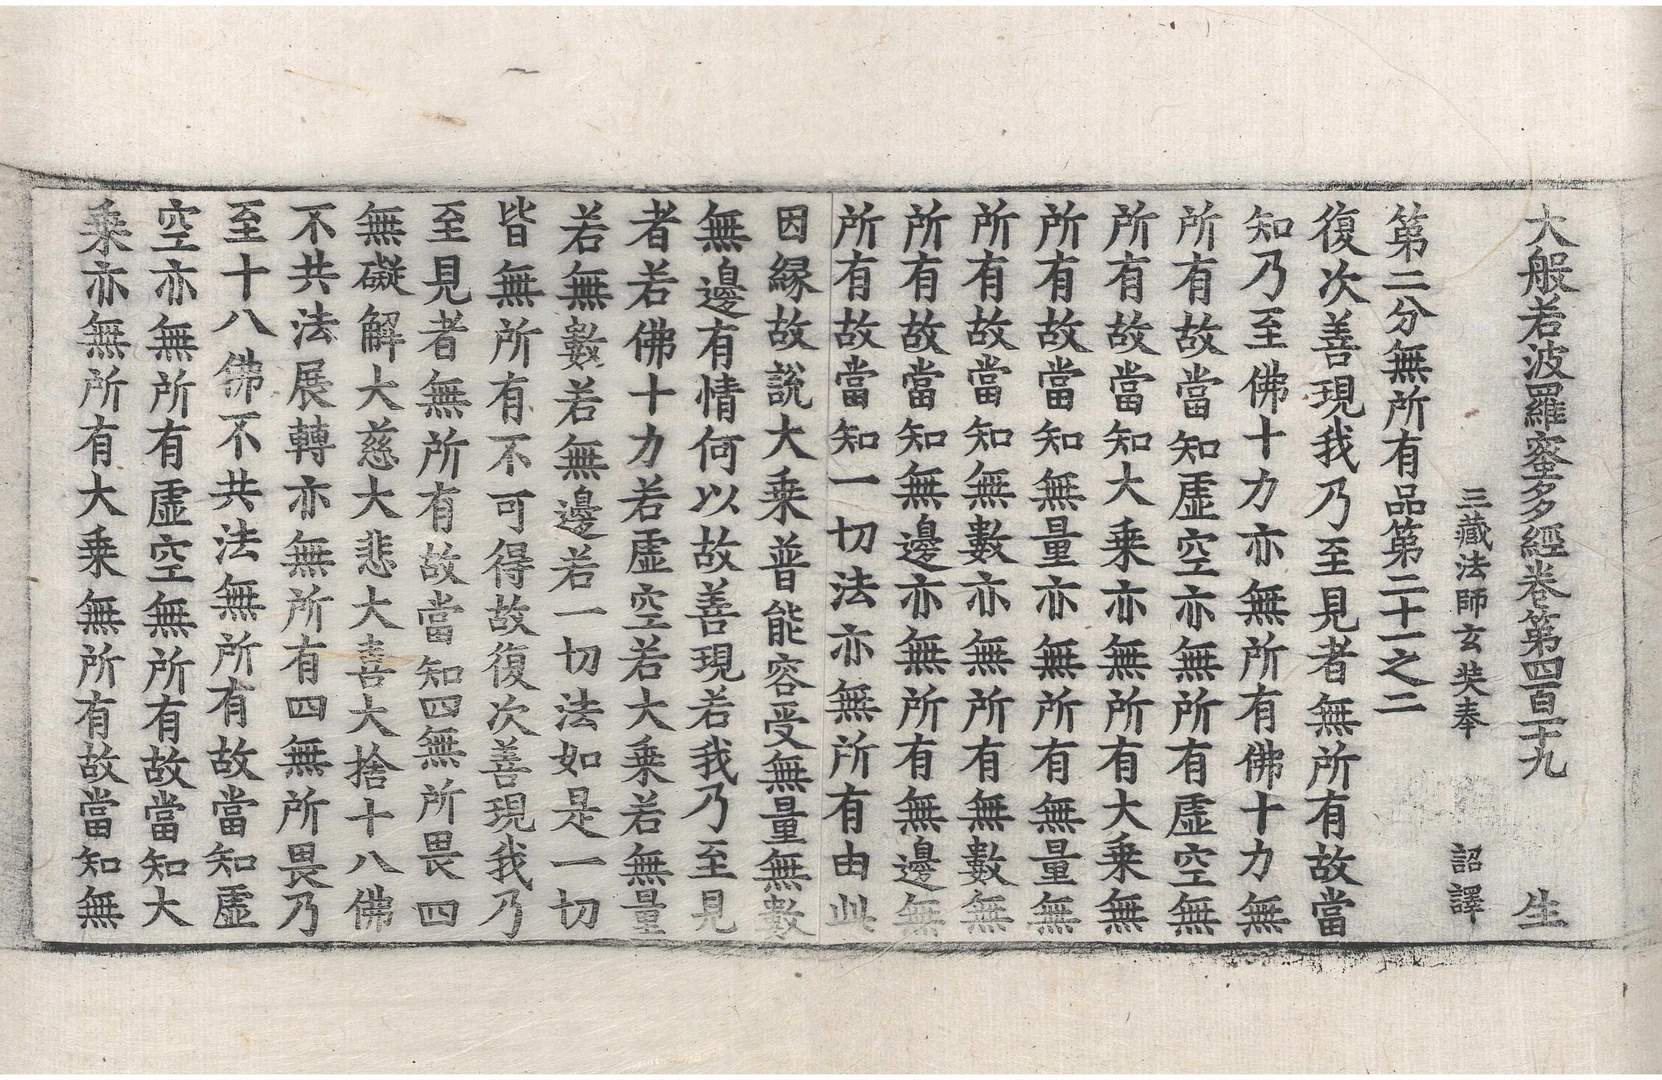 大般若波羅蜜多經卷第四百一十九　生
三藏法師玄奘奉　詔譯
第二分無所有品第二十一之二
復次善現我乃至見者無所有故當
知乃至佛十力亦無所有佛十力無
所有故當知虛空亦無所有虛空無
所有故當知大乘亦無所有大乘無
所有故當知無量亦無所有無量無
所有故當知無數亦無所有無數無
所有故當知無邊亦無所有無邊無
所有故當知一切法亦無所有由此
因緣故說大乘普能容受無量無數
無邊有情何以故善現若我乃至見
者若佛十力若虛空若大乘若無量
若無數若無邊若一切法如是一切
皆無所有不可得故復次善現我乃
至見者無所有故當知四無所畏四
無礙解大慈大悲大喜大捨十八佛
不共法展轉亦無所有四無所畏乃
至十八佛不共法無所有故當知虛
空亦無所有虛空無所有故當知大
乘亦無所有大乘無所有故當知無